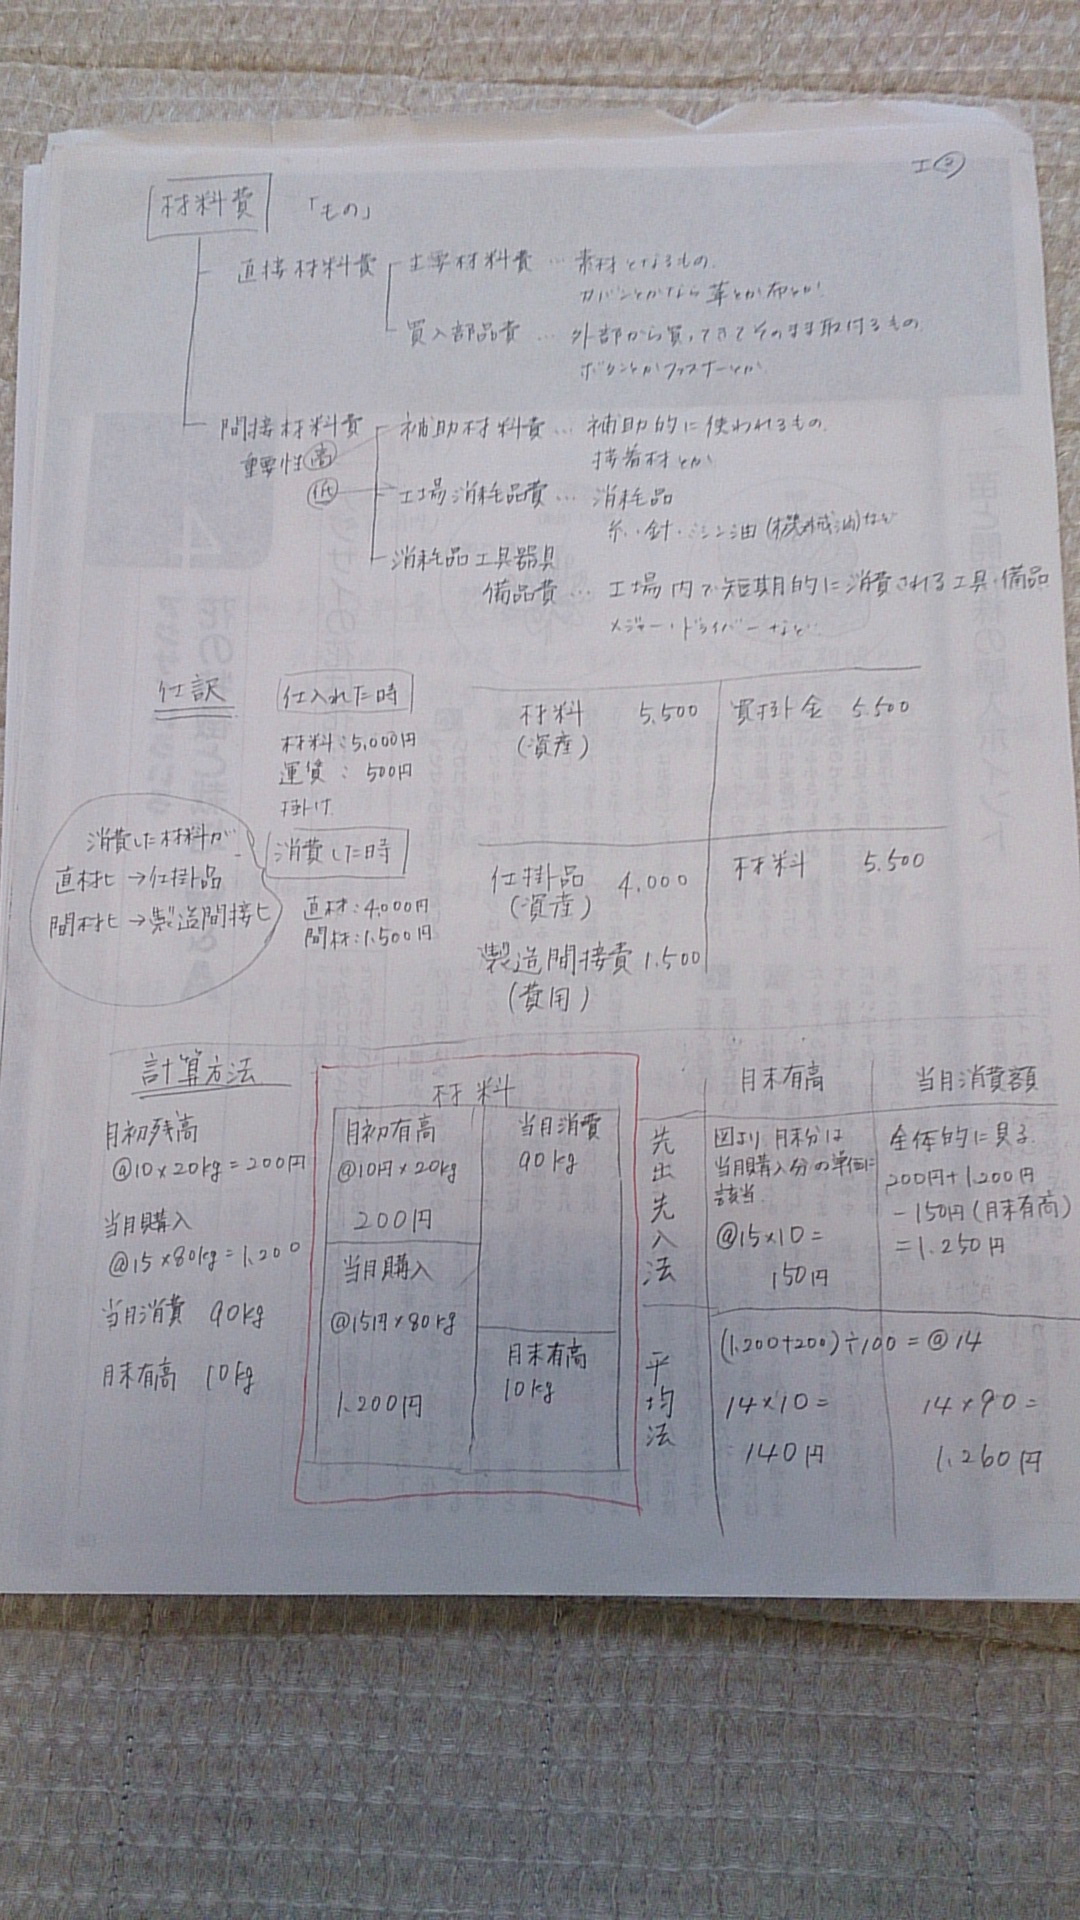 工③
材料費 「もの」
直接材料費 主要材料費 … 素材となるもの.
カバンとかなら革とか布とか.
買入部品費 … 外部から買ってきてそのまま取付るもの.
ボタンとかファスナーとか.
間接材料費 補助材料費 … 補助的に使われるもの.
重要性 高 接着材とか
低 工場消耗品費 … 消耗品
糸・針・ミシン油(機械油)など
消耗品工具器具
備品費 … 工場内で短期的に消費される工具・備品.
メジャー・ドライバーなど
仕訳 仕入れた時
材料 5,500 買掛金 5,500
(資産)
材料:5,000円
運賃: 500円
掛け.
消費した材料が
直材ヒ→仕掛品
間材ヒ→製造間接ヒ
消費した時
直材:4,000円
間材:1,500円
仕掛品 4,000 材料 5,500
(資産)
製造間接費 1,500
(費用)
計算方法
月初残高
@10×20kg=200円
当月購入
@15×80kg=1,200
当月消費 90kg
月末有高 10kg
材料
月初有高
@10円×20kg
200円
当月購入
@15円×80kg
1,200円
当月消費
90kg
月末有高
10kg
月末有高 当月消費額
先出先入法
図より 月末分は
当月購入分の単価に
該当.
@15×10=
150円
全体的に見る.
200円+1,200円
-150円(月末有高)
=1,250円
平均法
(1,200+200)÷100=@14
14×10=
140円
14×90=
1,260円